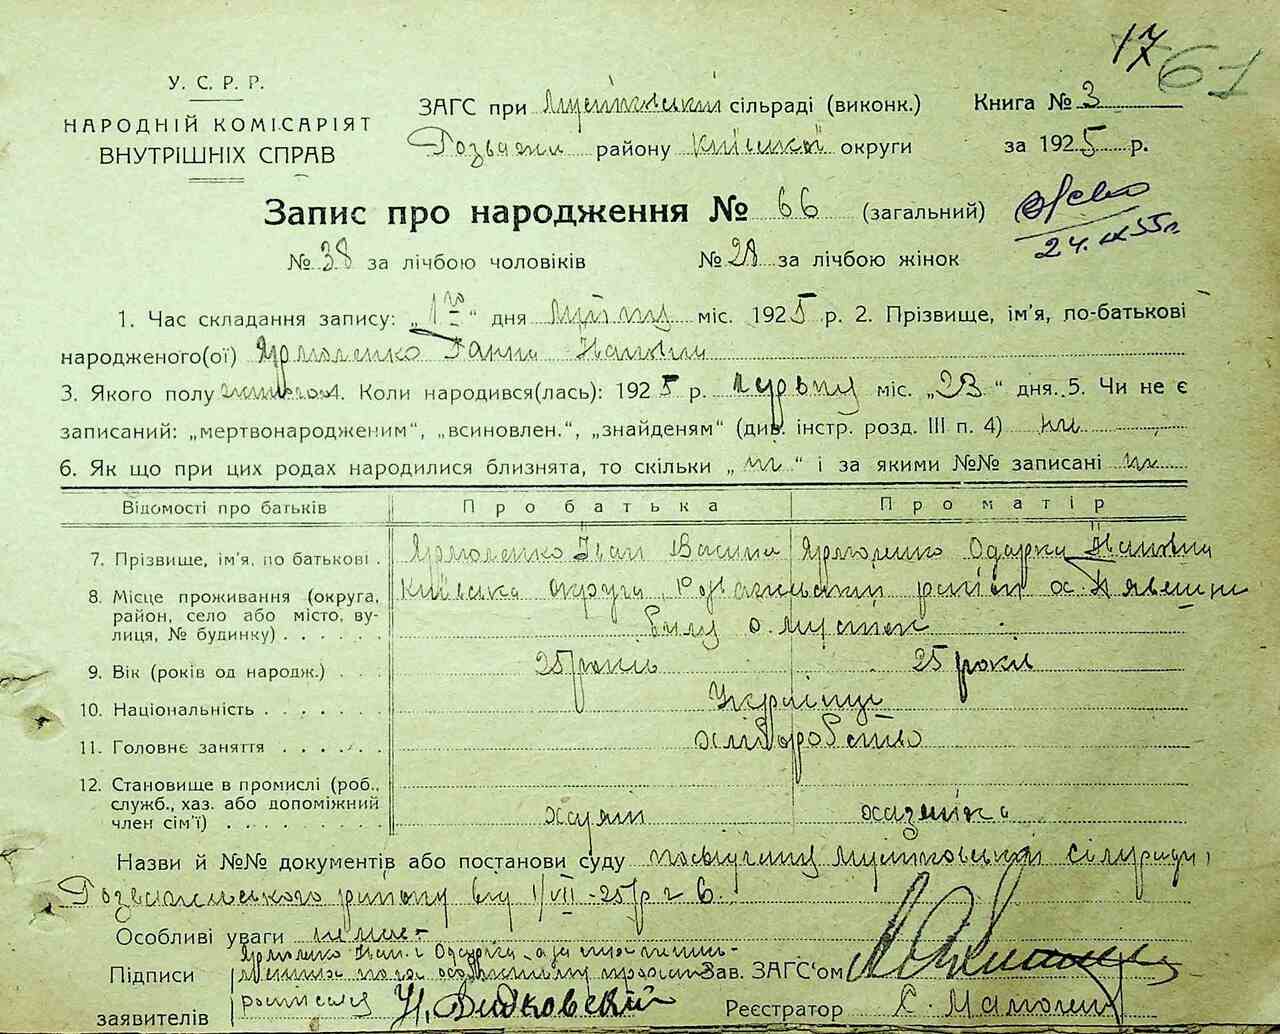 17 61
У. С. Р. Р.
НАРОДНІЙ КОМІСАРІЯТ
ВНУТРІШНІХ СПРАВ
ЗАГС при сільраді (виконк.)
району Київської округи
Книга № 3
за 1925 р.
Запис про народження № 66 (загальний)
24. IX 55 г.
№ 38 за лічбою чоловіків № 28 за лічбою жінок
1. Час складання запису: „1го“ дня міс. 1925 р. 2. Прізвище, ім'я, по-батькові
народженого(ої) Ярмоленко Ганна Іванівна
3. Якого полу 4. Коли народився(лась): 1925 р. червня міс. „23“ дня. 5. Чи не є
записаний: „мертвонародженим“, „всиновлен.“, „знайденям“ (див. інстр. розд. III п. 4) ні
6. Як що при цих родах народилися близнята, то скільки „ні“ і за якими №№ записані ні
Відомості про батьків Про батька Про матір
7. Прізвище, ім'я, по батькові Ярмоленко Іван Ярмоленко Одарка
8. Місце проживання (округа, район, село або місто, вулиця, № будинку) Київська округа, район
9. Вік (років од народж.) 25 років 25 років
10. Національність Українці
11. Головне заняття хліборобство
12. Становище в промислі (роб., служб., хаз. або допоміжний член сім'ї) хазяїн хазяйка
Назви й №№ документів або постанови суду сільради
району від 1/VII-25 р № 6.
Особливі уваги немає
Підписи заявителів Ярмоленко Іван і Одарка, а за
Зав. ЗАГС'ом
Реєстратор